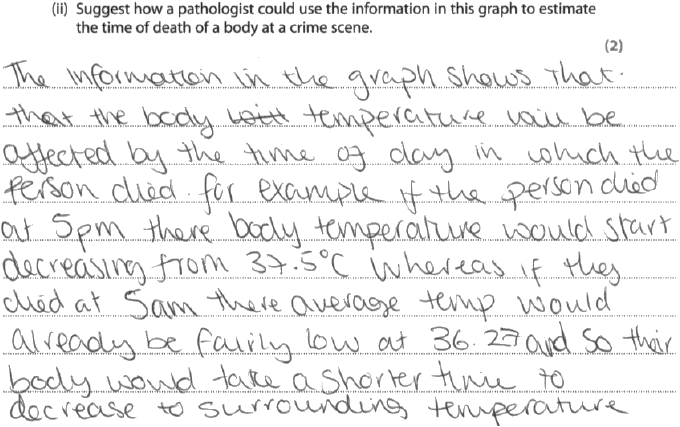 (ii) Suggest how a pathologist could use the information in this graph to estimate
the time of death of a body at a crime scene.
(2)
The information in the graph shows that.
that the body temperature will be
affected by the time of day in which the
person died. for example if the person died
at 5pm there body temperature would start
decreasing from 37.5°C whereas if they
died at 5am there average temp would
already be fairly low at 36.27 and so their
body would take a shorter time to
decrease to surrounding temperature